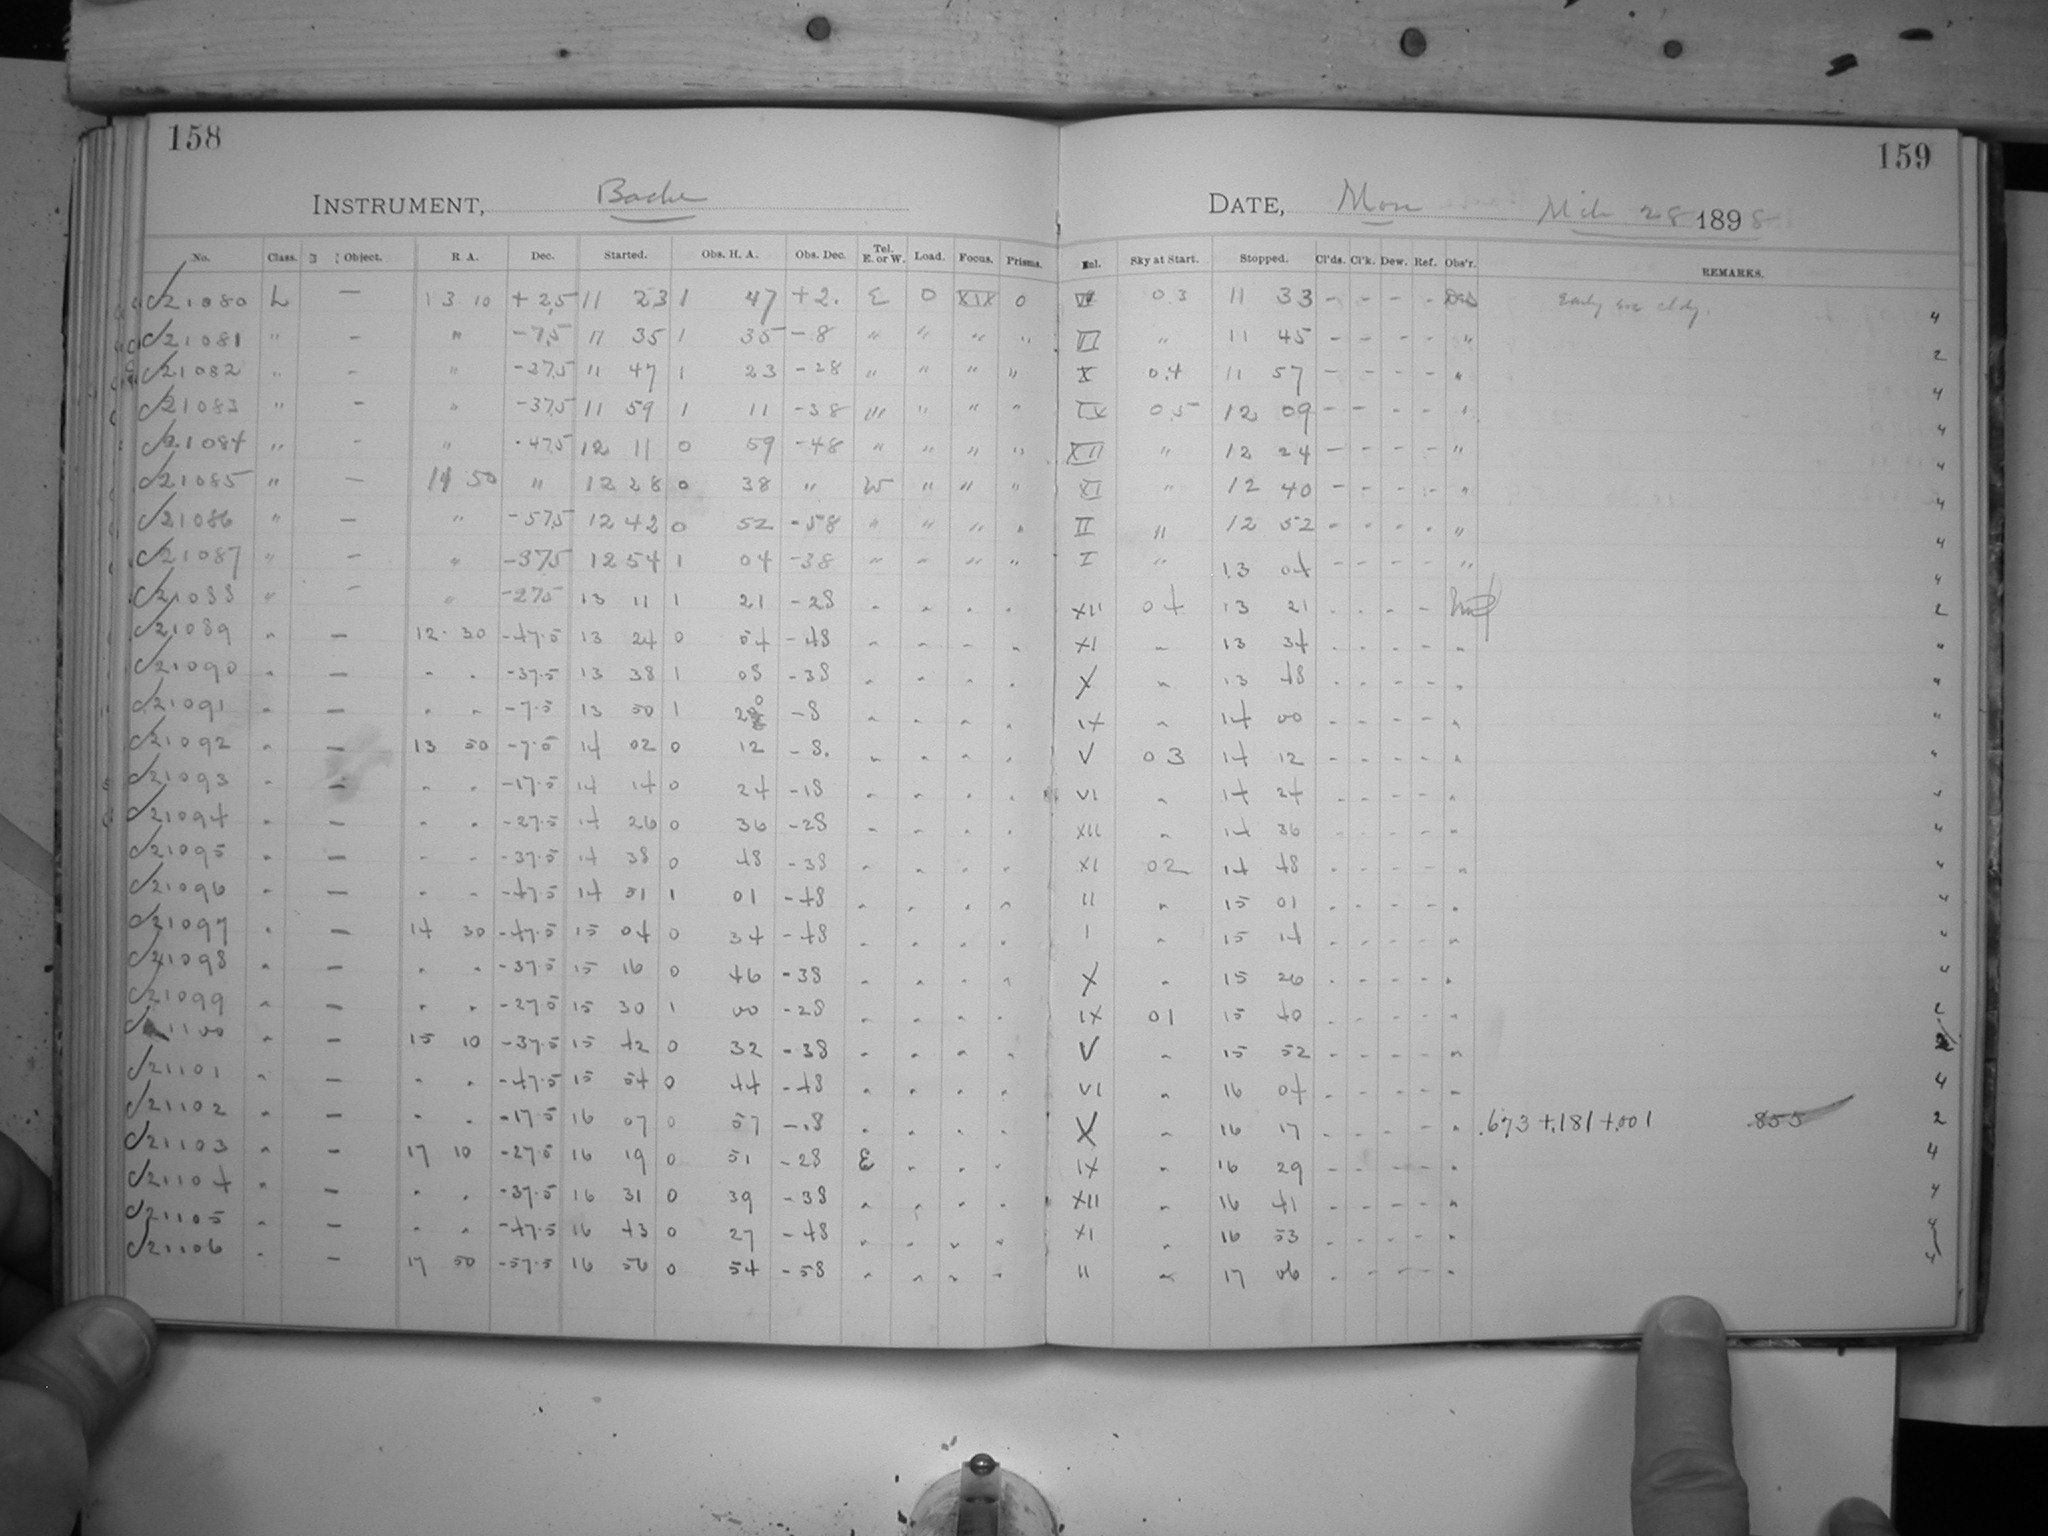 158
159
INSTRUMENT, Bache
DATE, Mon Mch 28 1898
No. Class. Object. R A. Dec. Started. Obs. H. A. Obs. Dec. Tel. E. or W. Load. Focus. Prisms. Enl. Sky at Start. Stopped. Cl'ds. Cl'k. Dew. Ref. Obs'r. REMARKS.
21080 L — 13 10 +2.5 11 23 1 47 +2. E 0 XIX 0 0.3 11 33 - - - - Early eve cldy. 4
21081 " - " -7.5 11 35 1 35 -8 " " " " VI " 11 45 - - - - " 2
21082 " - " -27.5 11 47 1 23 -28 " " " " X 0.4 11 57 - - - - " 4
21083 " - " -37.5 11 59 1 11 -38 " " " " IX 0.5 12 09 - - - - " 4
21084 " - " -47.5 12 11 0 59 -48 " " " " XII " 12 24 - - - - " 4
21085 " — 14 50 " 12 28 0 38 " W " " " XI " 12 40 - - - - " 4
21086 " — " -57.5 12 42 0 52 -58 " " " " II " 12 52 - - - - " 4
21087 " — " -37.5 12 54 1 04 -38 " " " " I " 13 04 - - - - " 4
21088 " — " -27.5 13 11 1 21 -28 " " " " XII 04 13 21 - - - - 2
21089 " — 12 30 -47.5 13 24 0 54 -48 " " " " XI " 13 34 - - - - " "
21090 " — " " -37.5 13 38 1 08 -38 " " " " X " 13 48 - - - - " "
21091 " — " " -7.5 13 50 1 20 -8 " " " " IX " 14 00 - - - - " "
21092 " — 13 50 -7.5 14 02 0 12 -8. " " " " V 03 14 12 - - - - " "
21093 " — " " -17.5 14 14 0 24 -18 " " " " VI " 14 24 - - - - " "
21094 " — " " -27.5 14 26 0 36 -28 " " " " XII " 14 36 - - - - " "
21095 " — " " -37.5 14 38 0 48 -38 " " " " XI 02 14 48 - - - - " "
21096 " — " " -47.5 14 51 1 01 -48 " " " " II " 15 01 - - - - " "
21097 " — 14 30 -47.5 15 04 0 34 -48 " " " " I " 15 14 - - - - " "
21098 " — " " -37.5 15 16 0 46 -38 " " " " X " 15 26 - - - - " "
21099 " — " " -27.5 15 30 1 00 -28 " " " " IX 01 15 40 - - - - " 2
21100 " — 15 10 -37.5 15 42 0 32 -38 " " " " V " 15 52 - - - - "
21101 " — " " -47.5 15 54 0 44 -48 " " " " VI " 16 04 - - - - " 4
21102 " — " " -17.5 16 07 0 57 -18 " " " " X " 16 17 - - - - " .673+.181+.001 855 2
21103 " — 17 10 -27.5 16 19 0 51 -28 E " " " IX " 16 29 - - - - " 4
21104 " — " " -37.5 16 31 0 39 -38 " " " " XII " 16 41 - - - - " 4
21105 " — " " -47.5 16 43 0 27 -48 " " " " XI " 16 53 - - - - " 4
21106 " — 17 50 -57.5 16 56 0 54 -58 " " " " II " 17 06 - - - - " 4